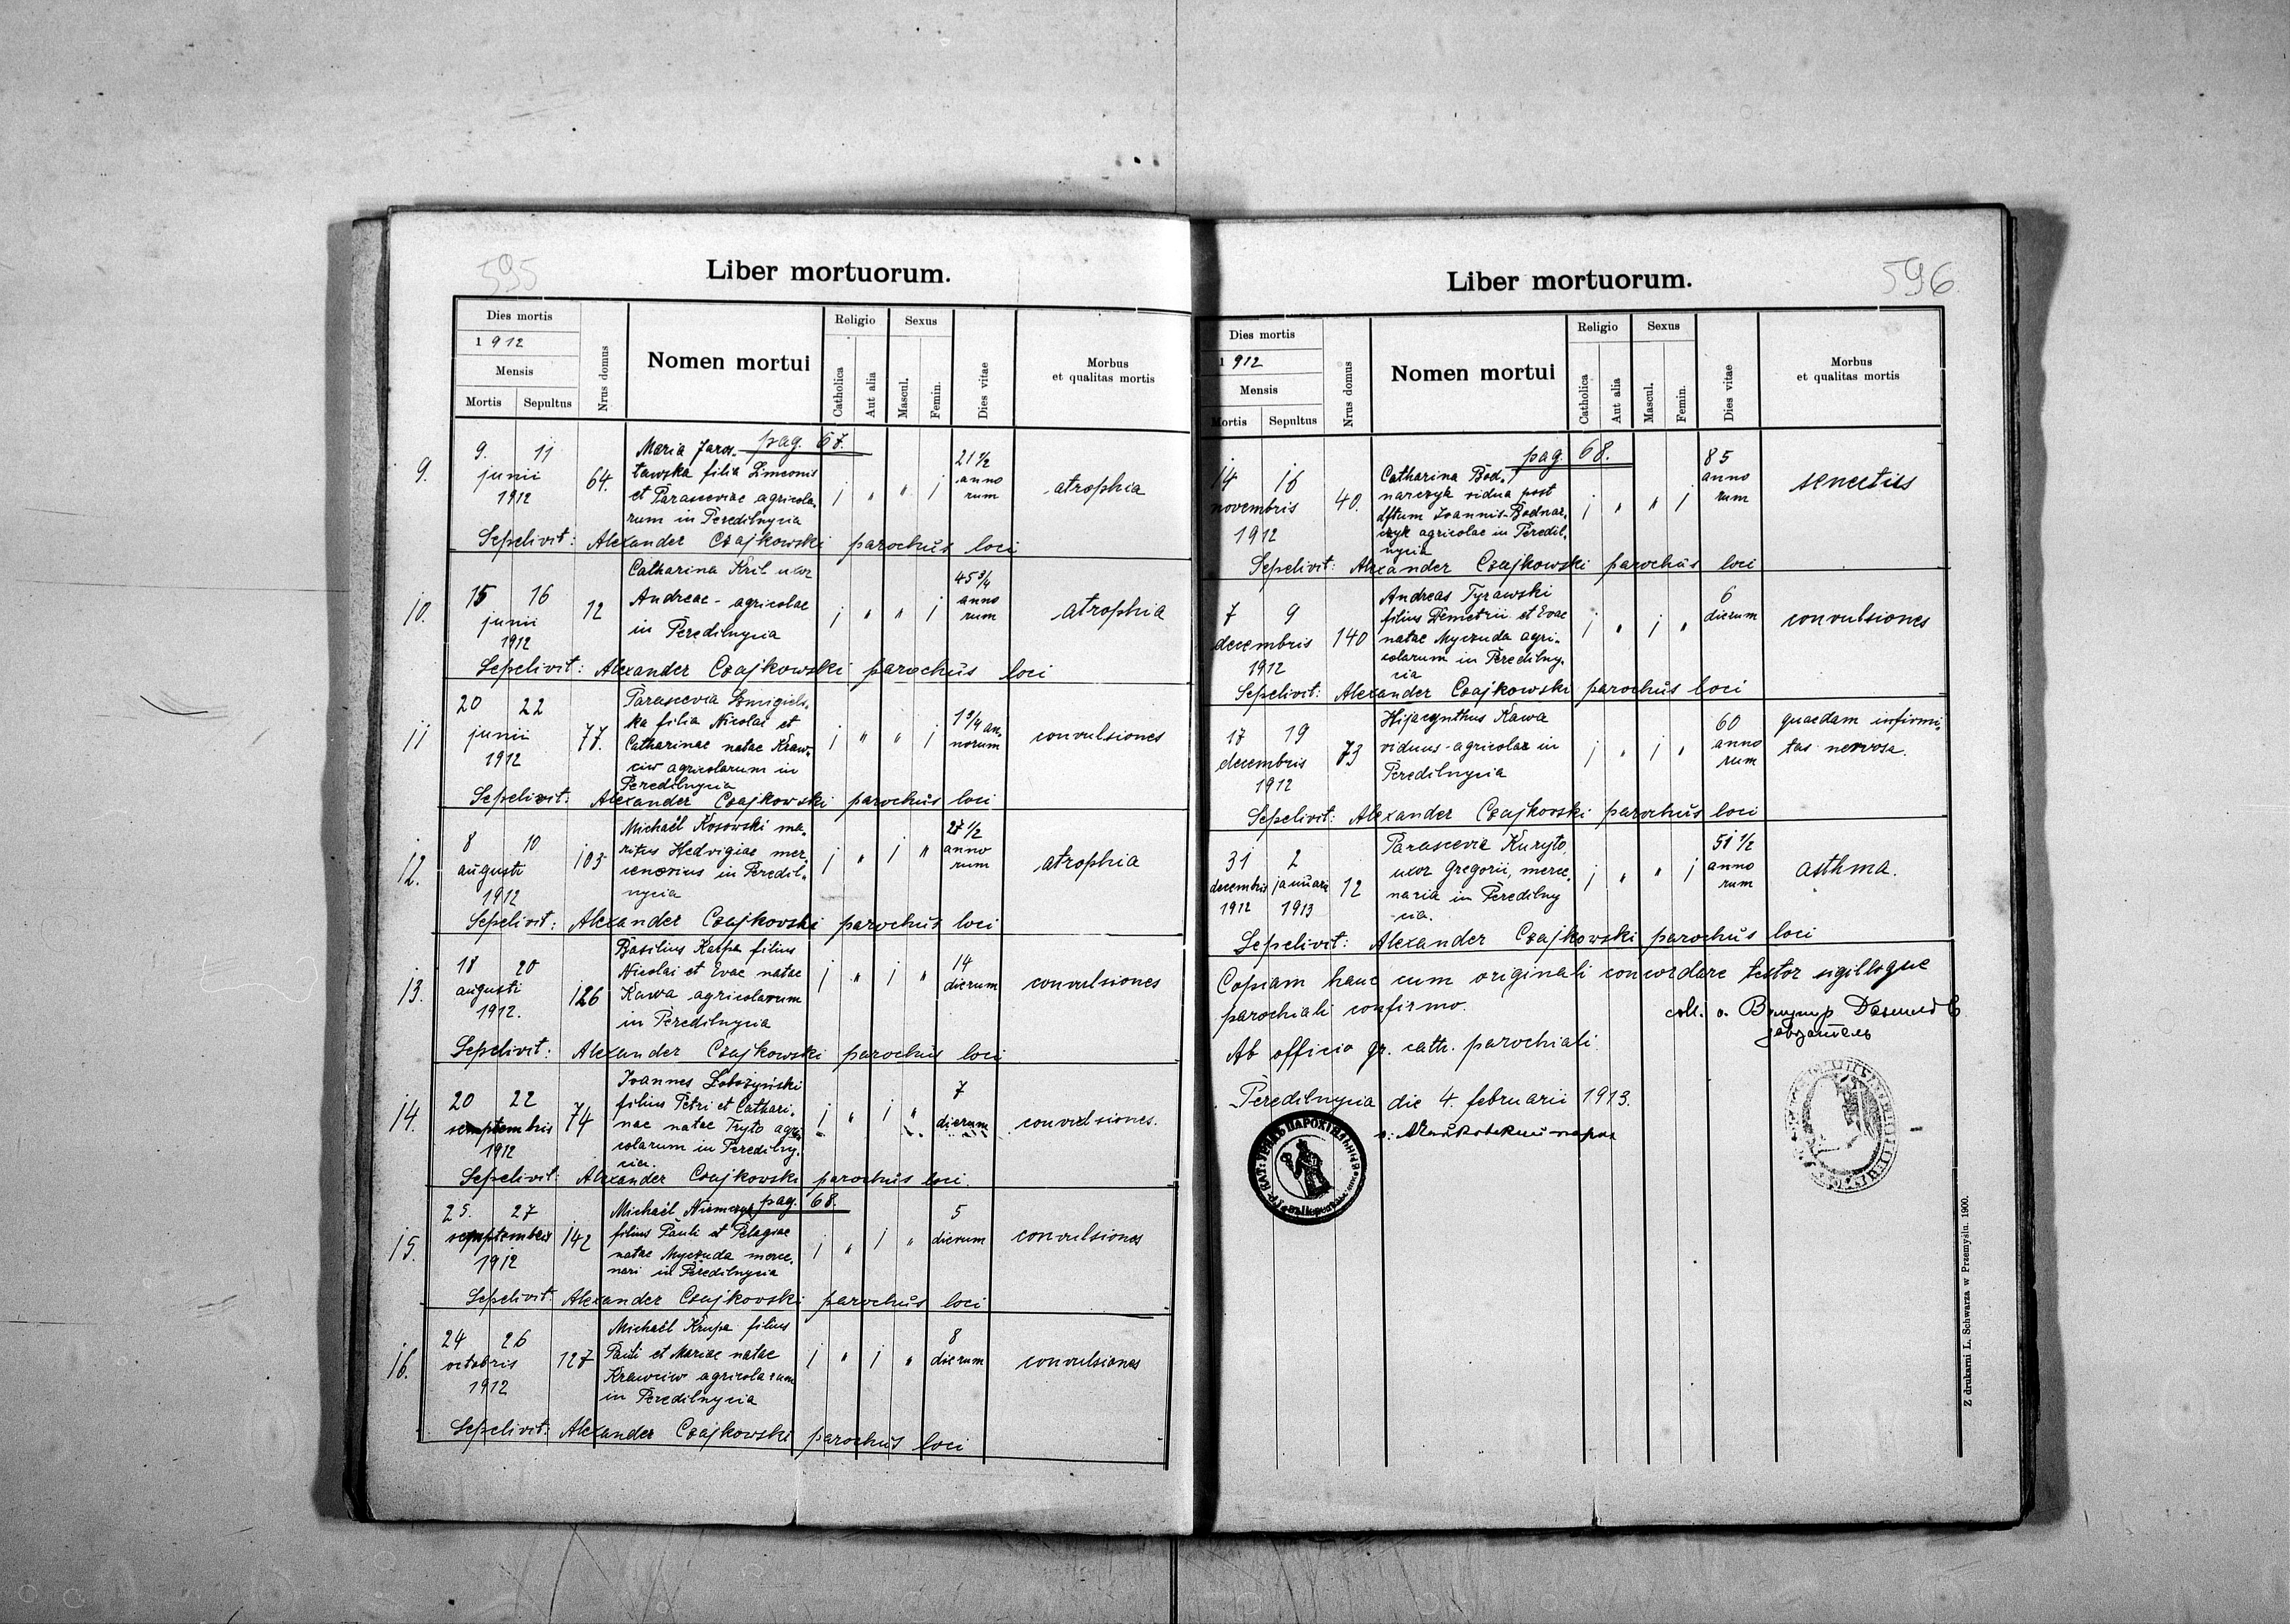 595
Liber mortuorum.
Dies mortis
1 912
Mensis
Mortis Sepultus
Nrus domus
Nomen mortui
Religio
Catholica
Aut alia
Sexus
Mascul.
Femin.
Dies vitae
Morbus
et qualitas mortis
pag. 67.
9.
9. 11
junii
1912
64.
Maria Jaros-
ławska filia Simeonis
et Parasceviae agricola-
rum in Peredilnycia
1 " " 1
21 1/2
anno
rum
atrophia
Sepelivit: Alexander Czajkowski parochus loci
10.
15 16
junii
1912
12
Catharina Kril uxor
Andreae - agricolae
in Peredilnycia
1 " " 1
45 3/4
anno
rum
atrophia
Sepelivit: Alexander Czajkowski parochus loci
11
20 22
junii
1912
77.
Parascevia Żmigiels-
ka filia Nicolai et
Catharinae natae Kraw-
ciw agricolarum in
Peredilnycia
1 " " 1
1 3/4 an-
norum
convulsiones
Sepelivit: Alexander Czajkowski parochus loci
12.
8 10
augusti
1912
103
Michaël Kosowski ma-
ritus Hedvigiae mer-
cenarius in Peredil-
nycia
1 " 1 "
27 1/2
anno
rum
atrophia
Sepelivit: Alexander Czajkovski parochus loci
13.
18 20
augusti
1912.
126
Basilius Karpa filius
Nicolai et Evae natae
Kawa agricolarum
in Peredilnycia
1 " 1 "
14
dierum
convulsiones
Sepelivit: Alexander Czajkowski parochus loci
14.
20 22
septembris
1912
74
Ivannes
filius Petri et Cathari-
nae natae Tryto agri-
colarum in Peredilny-
cia.
1 " 1 "
7
dierum
convulsiones.
Sepelivit: Alexander Czajkovski parochus loci.
pag. 68.
15.
25. 27
septembris
1912
142
Michaël Niemczyk
filius Pauli et Pelagiae
natae Myczuda merce-
nari in Peredilnycia
1 " 1 "
5
dierum
convulsiones
Sepelivit: Alexander Czajkovski parochus loci
16.
24 26
octobris
1912
127
Michaël Krupa filius
Pauli et Mariae natae
Krawciw agricolarum
in Peredilnycia
1 " 1 "
8
dierum
convulsiones
Sepelivit: Alexander Czajkowski parochus loci
596
Liber mortuorum.
Dies mortis
1 912
Mensis
Mortis Sepultus
Nrus domus
Nomen mortui
Religio
Catholica
Aut alia
Sexus
Mascul.
Femin.
Dies vitae
Morbus
et qualitas mortis
pag. 68.
14 16
novembris
1912
40.
Catharina Bod-
narczyk vidua post
dftum Ivannis Bodnar-
czyk agricolae in Peredil-
nycia
1 " " 1
85
anno
rum
senectus
Sepelivit: Alexander Czajkowski parochus loci
7 9
decembris
1912
140
Andreas Tyrawski
filius Demetrii et Evae
natae Myczuda agri-
colarum in Peredilny-
cia
1 " 1 "
6
dierum
convulsiones
Sepelivit: Alexander Czajkowski parochus loci
17 19
decembris
1912
73
Hijacynthus Kawa
viduus - agricolae in
Peredilnycia
1 " 1 "
60
anno
rum
quaedam infirmi-
tas nervosa.
Sepelivit: Alexander Czajkovski parochus loci
31 2
decembris januarii
1912 1913
12
Parascevia Kuryto
uxor Gregorii, merce-
naria in Peredilny
-cia.
1 " " 1
51 1/2
anno
rum
asthma.
Sepelivit: Alexander Czajkowski parochus loci
Copiam hanc cum originali concordare testor sigilloque
parochiali confirmo.
coll. о.
завідатель
Ab officio gr. cath. parochiali
Peredilnycia die 4. februarii 1913.
парох
Z drukarni L. Schwarza w Przemyślu. 1900.